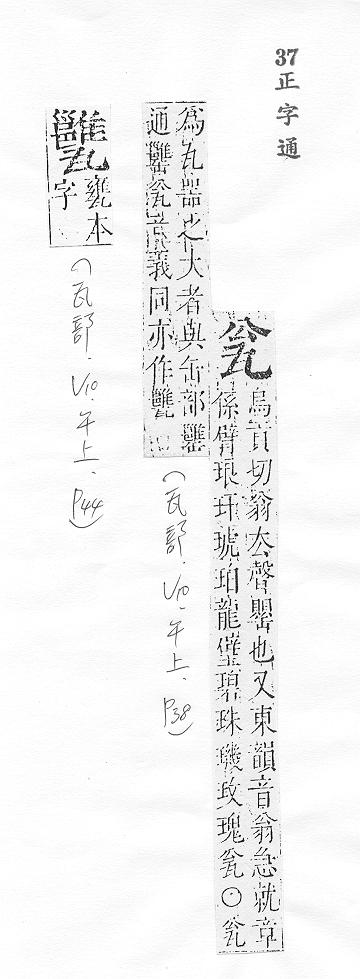 37正字通
瓮
烏貢切翁去聲罌也又東韻音翁急就章
係臂琅玕琥珀龍璧碧珠璣玫瑰瓮〇瓮
為瓦器之大者與缶部罋
通罋瓮音義同亦作甕
(瓦部.V10.午上.P38)
甕本
字
(瓦部.V10.午上.P44)